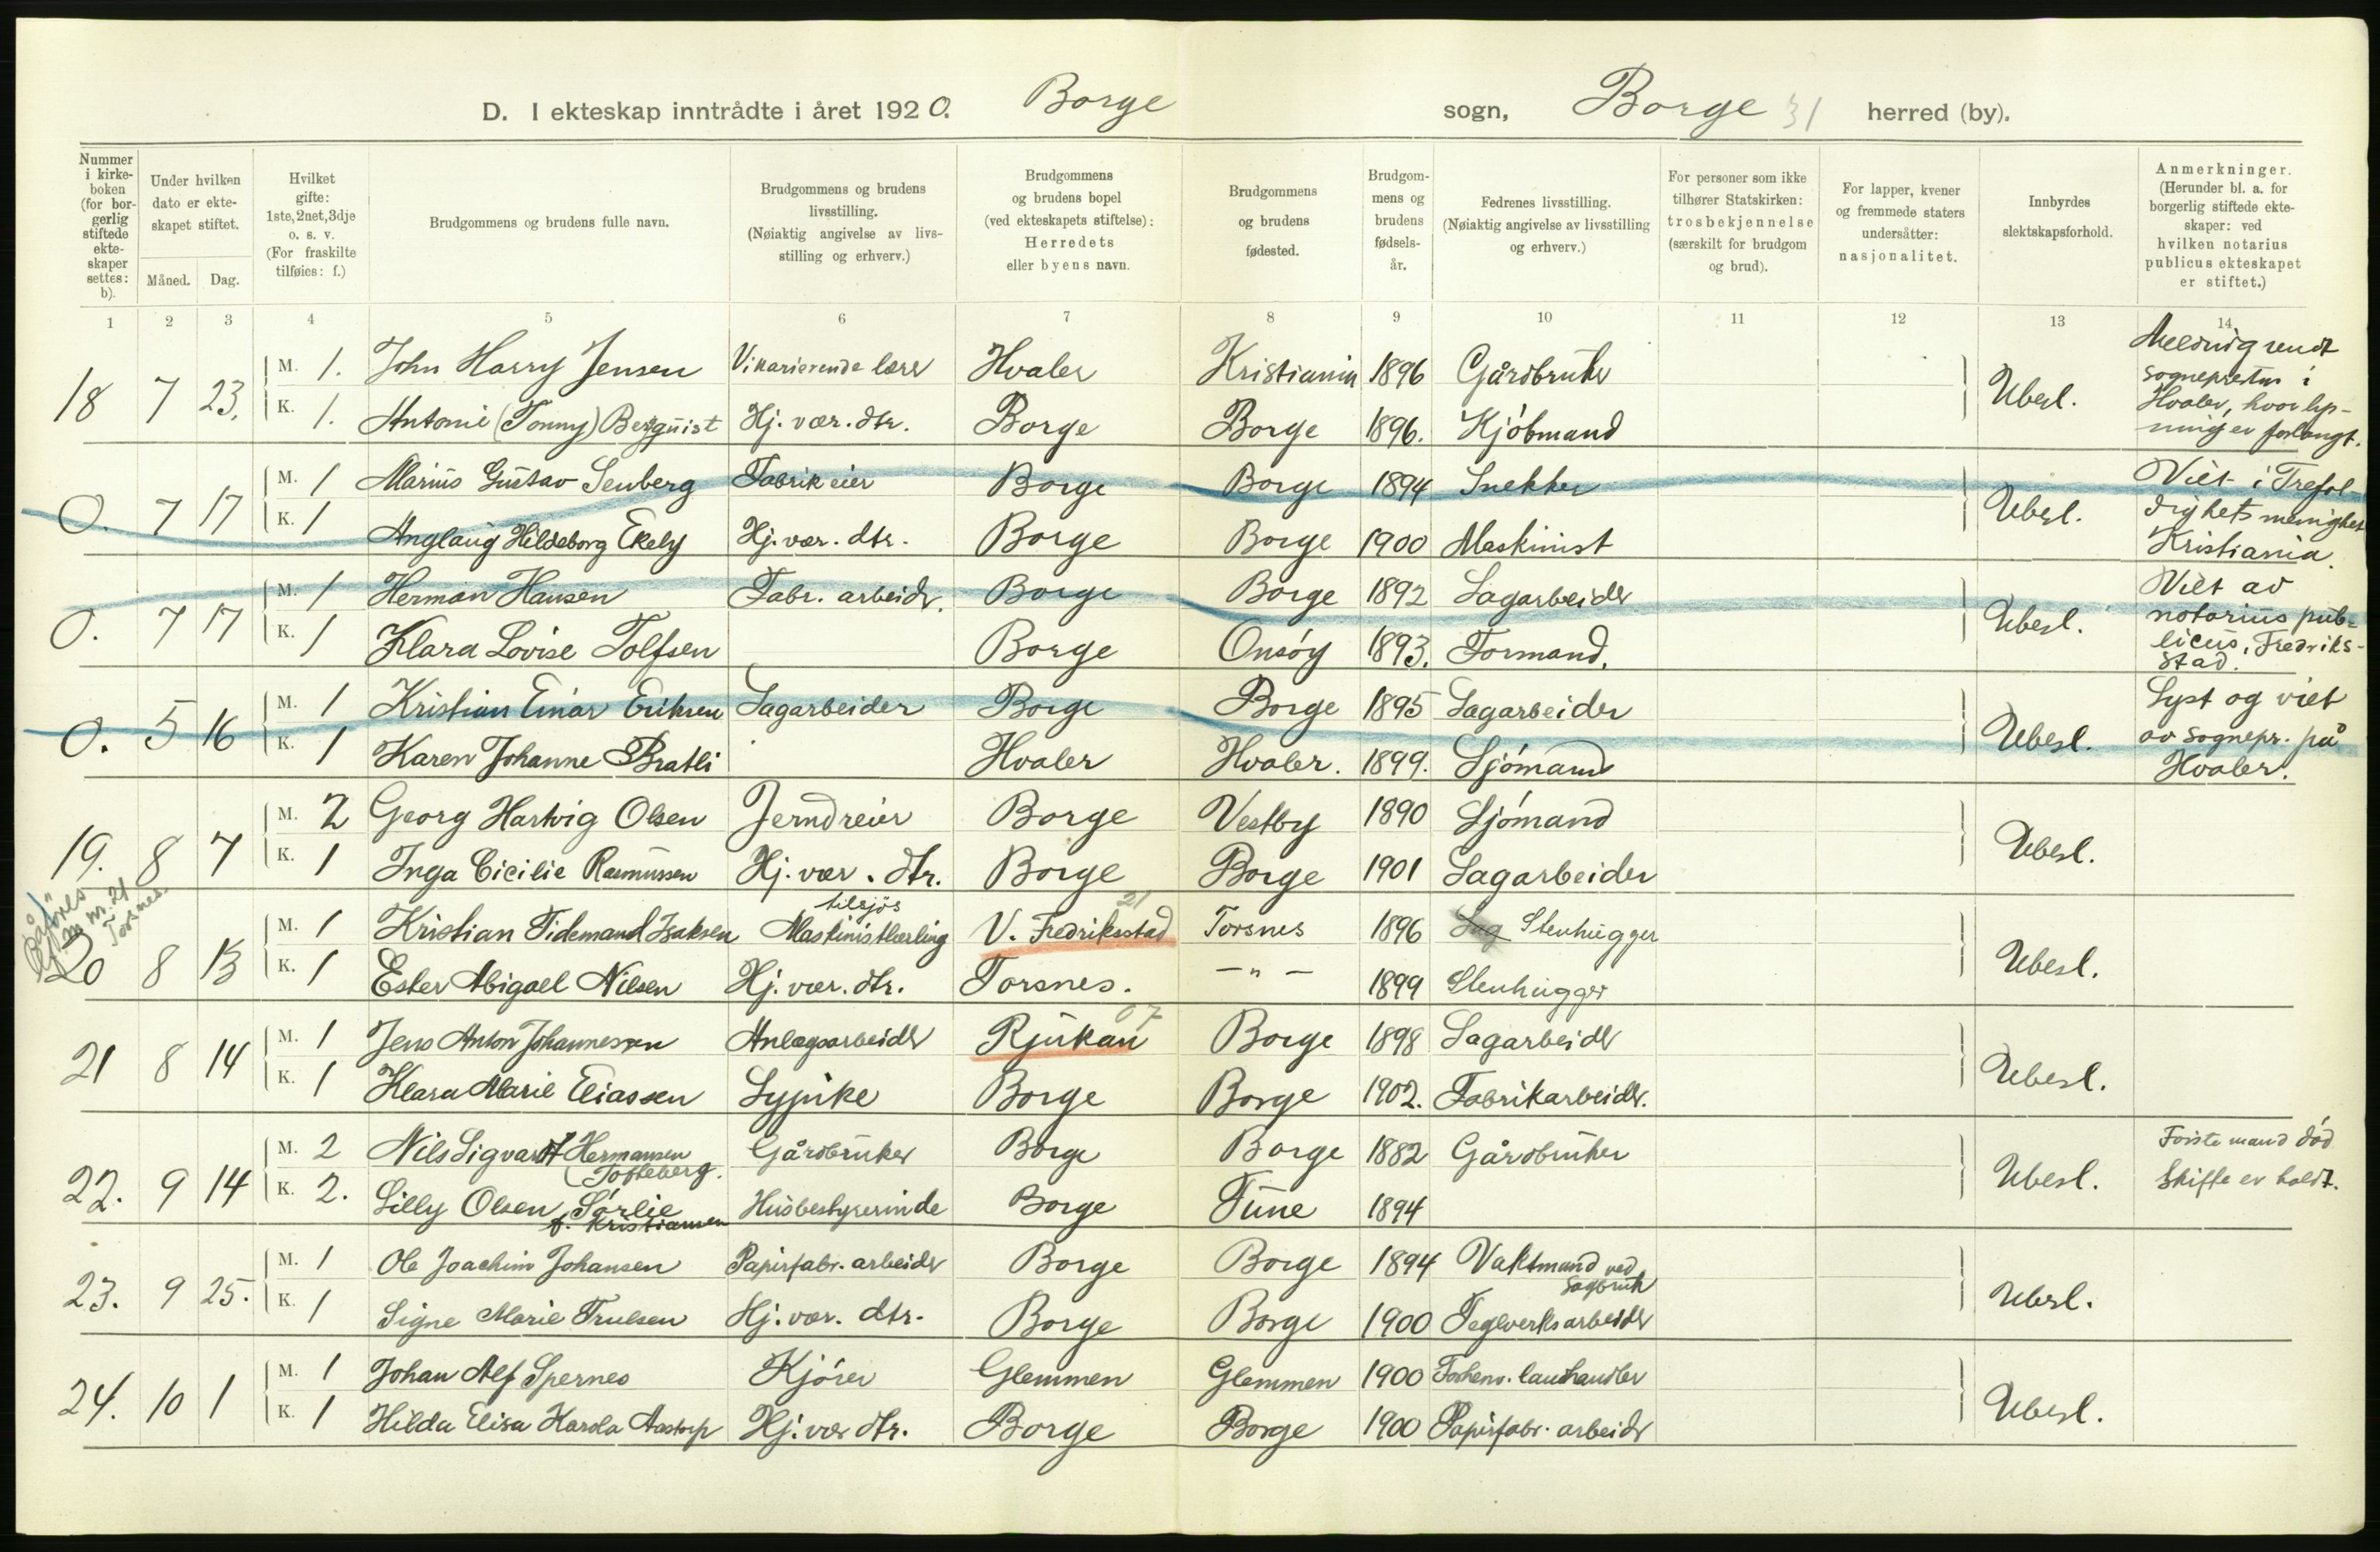 D. I ekteskap inntrådte i året 1920. Borge sogn, Borge 31 herred (by).
Nummer i kirkeboken (for borgerlig stiftede ekteskaper settes: b).
Under hvilken dato er ekteskapet stiftet.
Måned. Dag.
Hvilket gifte: 1ste, 2net, 3dje o. s. v. (For fraskilte tilføies: f.)
Brudgommens og brudens fulle navn.
Brudgommens og brudens livsstilling. (Nøiaktig angivelse av livsstilling og erhverv.)
Brudgommens og brudens bopel (ved ekteskapets stiftelse): Herredets eller byens navn.
Brudgommens og brudens fødested.
Brudgommens og brudens fødselsår.
Fedrenes livsstilling. (Nøiaktig angivelse av livsstilling og erhverv.)
For personer som ikke tilhører Statskirken: trosbekjennelse (særskilt for brudgom og brud).
For lapper, kvener og fremmede staters undersåtter: nasjonalitet.
Innbyrdes slektskapsforhold.
Anmerkninger. (Herunder bl. a. for borgerlig stiftede ekteskaper: ved hvilken notarius publicus ekteskapet er stiftet.)
1 2 3 4 5 6 7 8 9 10 11 12 13 14
18 7 23. M. 1. John Harry Jensen Vikarierende lærer Hvaler Kristiania 1896 Gårdbruker Ubesl. Melding sendt sognepresten i
K. 1. Antonie (Tonny) Bergquist Hj. vær. dtr. Borge Borge 1896. Kjóbmand Hvaler, hvor lysning er forlangt.
0. 7 17 M. 1 Marius Gustav Senberg Fabrikeier Borge Borge 1894 Snekker Ubesl. Viet i Trefoldighets menighet
K. 1 Anglaug Hildeborg Ekely Hj. vær. dtr. Borge Borge 1900 Maskinist Kristiania.
0. 7 17 M. 1 Herman Hansen Fabr. arbeider. Borge Borge 1892 Sagarbeider Ubesl. Viet av notarius pub-
K. 1 Klara Lovise Tolfsen Borge Onsóy 1893. Formand. licus, Fredrikstad.
0. 5 16 M. 1 Kristian Einar Eriksen Sagarbeider Borge Borge 1895 Sagarbeider Ubesl. Lyst og viet
K. 1 Karen Johanne Bratli Hvaler Hvaler. 1899. Sjómand av sognepr. på Hvaler.
19. 8 7 M. 2 Georg Hartvig Olsen Jerndreier Borge Vestby 1890 Sjómand Ubesl.
K. 1 Inga Cicilie Rasmussen Hj. vær. dtr. Borge Borge 1901 Sagarbeider
nr. 21 Torsnes.
20 8 13 M. 1 Kristian Tidemand Isaksen Maskinistlærling tilsjös V. Fredriksstad 21 Torsnes 1896 Sag Stenhugger Ubesl.
K. 1 Ester Abigael Nilsen Hj. vær. dtr. Torsnes. — " — 1899 Stenhugger
21 8 14 M. 1 Jens Anton Johannesen Anlægsarbeider Rjukan 07 Borge 1898 Sagarbeider Ubesl.
K. 1 Klara Marie Eliassen Sypike Borge Borge 1902. Fabrikarbeider.
22. 9 14 M. 2 Nils Sigvart Hermansen (Tofteberg. Gårdbruker Borge Borge 1882 Gårdbruker Ubesl. Förste mand död
K. 2. Lilly Olsen Sórlie f. Kristiansen Husbestyrerinde Borge Tune 1894 Skifte er holdt.
23. 9 25. M. 1 Ole Joachim Johansen Papirfabr. arbeider Borge Borge 1894 Vaktmand ved Sagbruk Ubesl.
K. 1 Signe Marie Trulsen Hj. vær. dtr. Borge Borge 1900 Teglverksarbeider
24. 10 1 M. 1 Johan Alf Spernes Kjórer Glemmen Glemmen 1900 landhandler Ubesl.
K. 1 Hilda Elisa Karola Aastorp Hj. vær dtr. Borge Borge 1900 Papirfabr. arbeidr